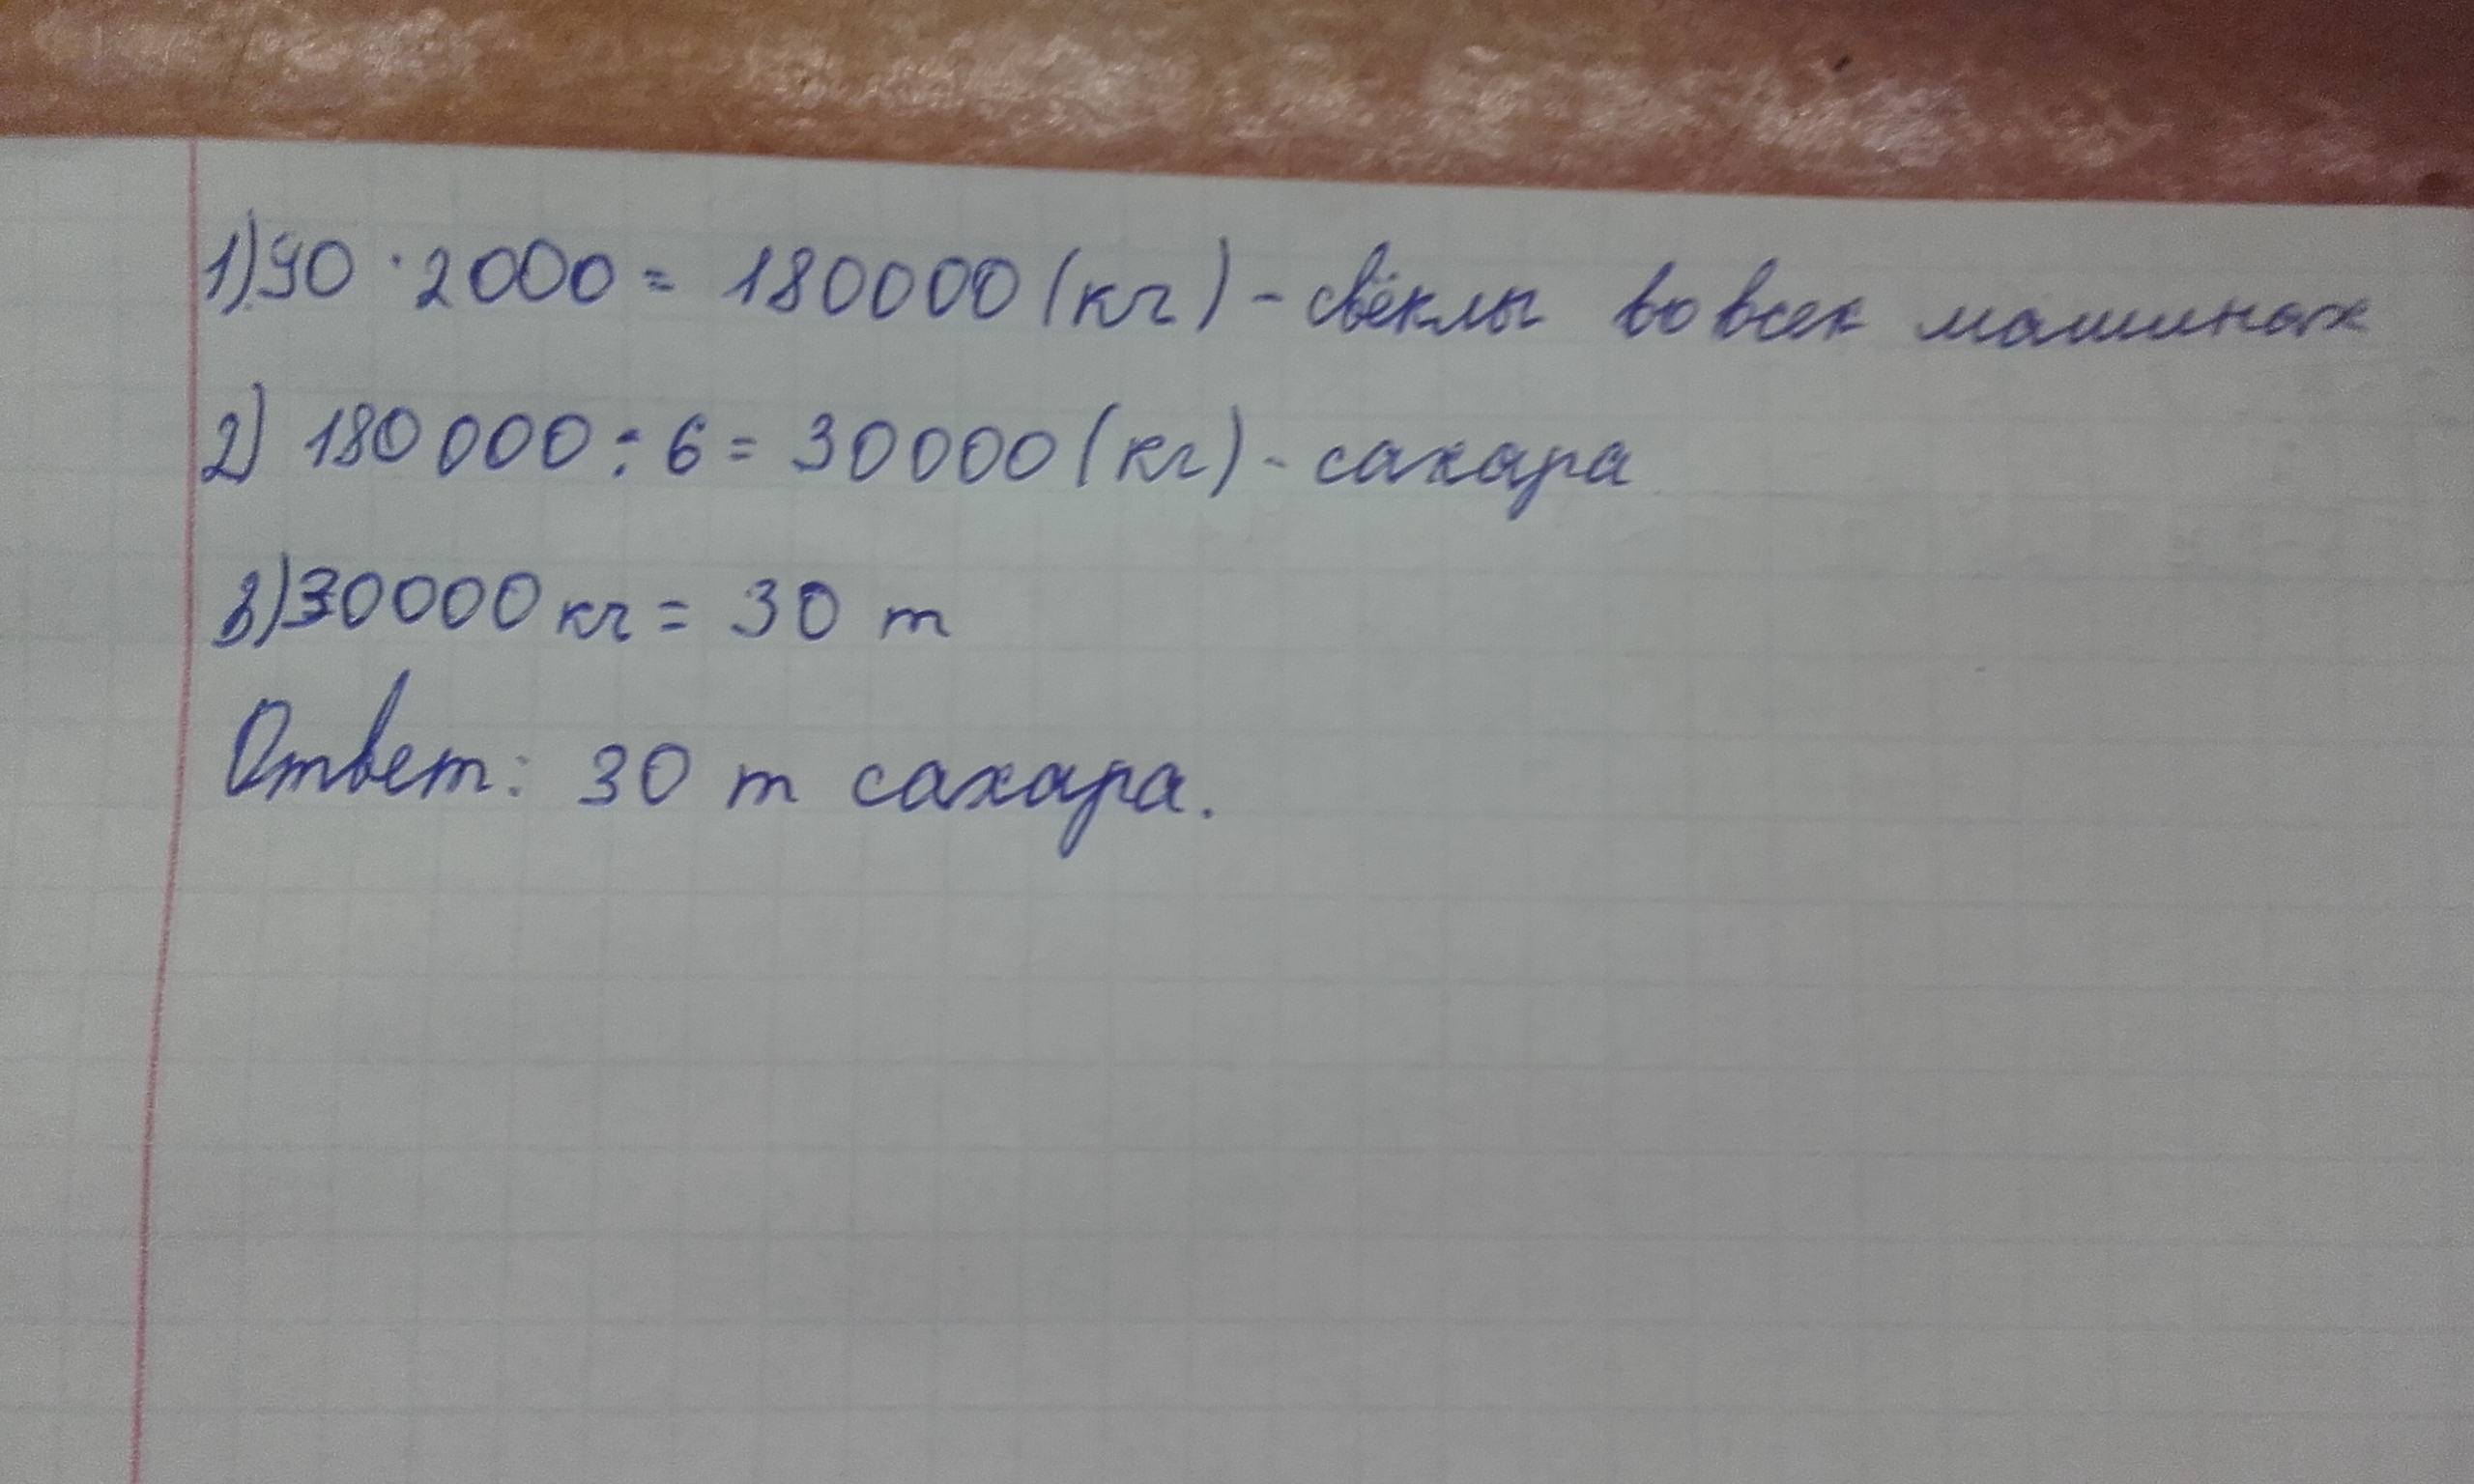 1) 90 · 2000 = 180000 (кг) - свёклы во всех машинах
2) 180 000 : 6 = 30000 (кг) - сахара
3) 30000 кг = 30 т
Ответ: 30 т сахара.